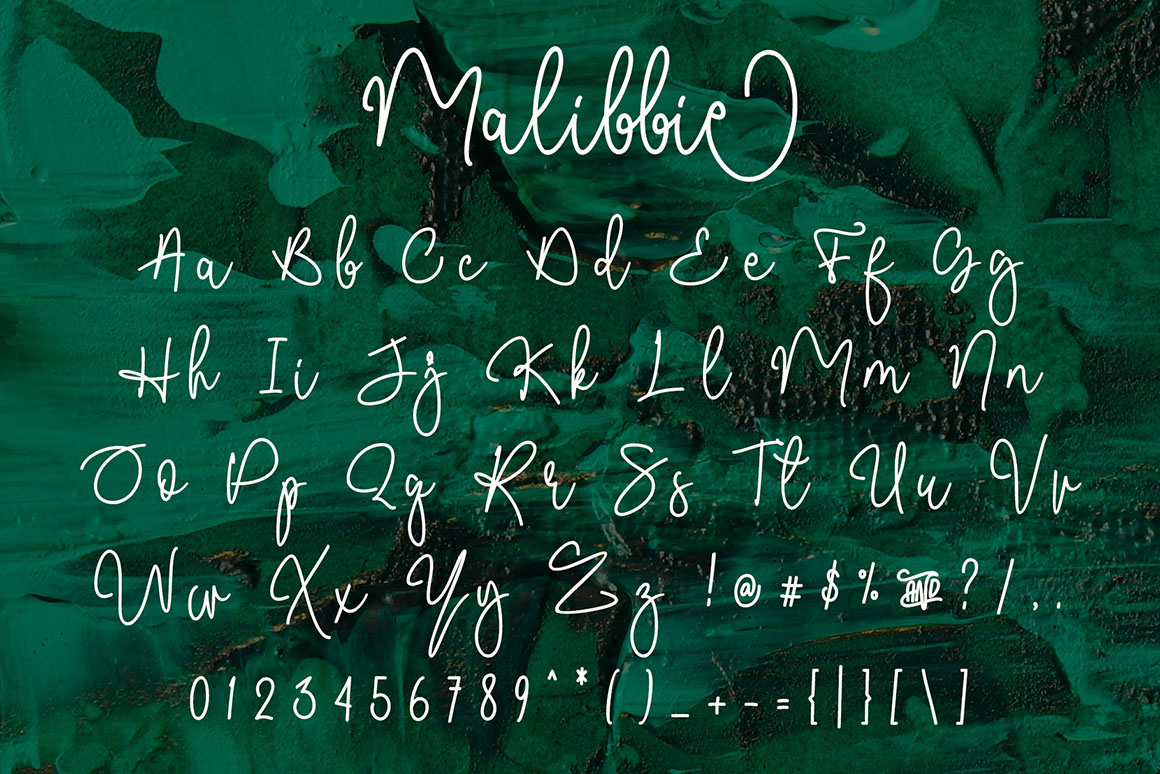 Malibbie
Aa Bb Cc Dd Ee Ff Gg
Hh Ii Jj Kk Ll Mm Nn
Oo Pp Qq Rr Ss Tt Uu Vv
Ww Xx Yy Zz ! @ # $ % AND ? / , .
0 1 2 3 4 5 6 7 8 9 ^ * ( ) _ + - = { | } [ \ ]